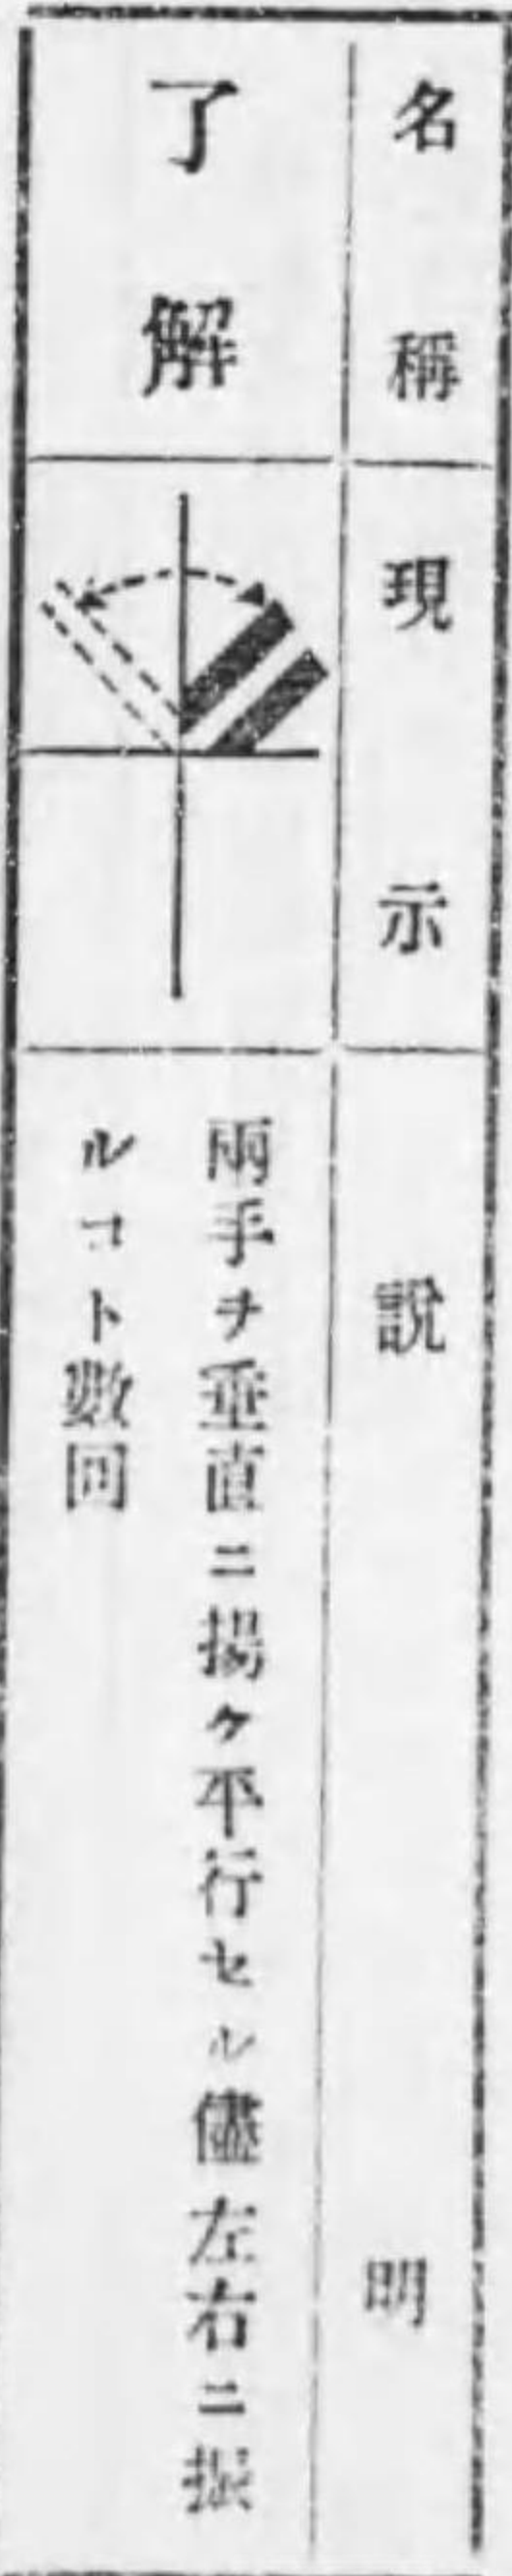 名稱
現示
說明
了解
兩手ヲ垂直ニ揚ケ平行セル儘左右ニ振
ルコト數回